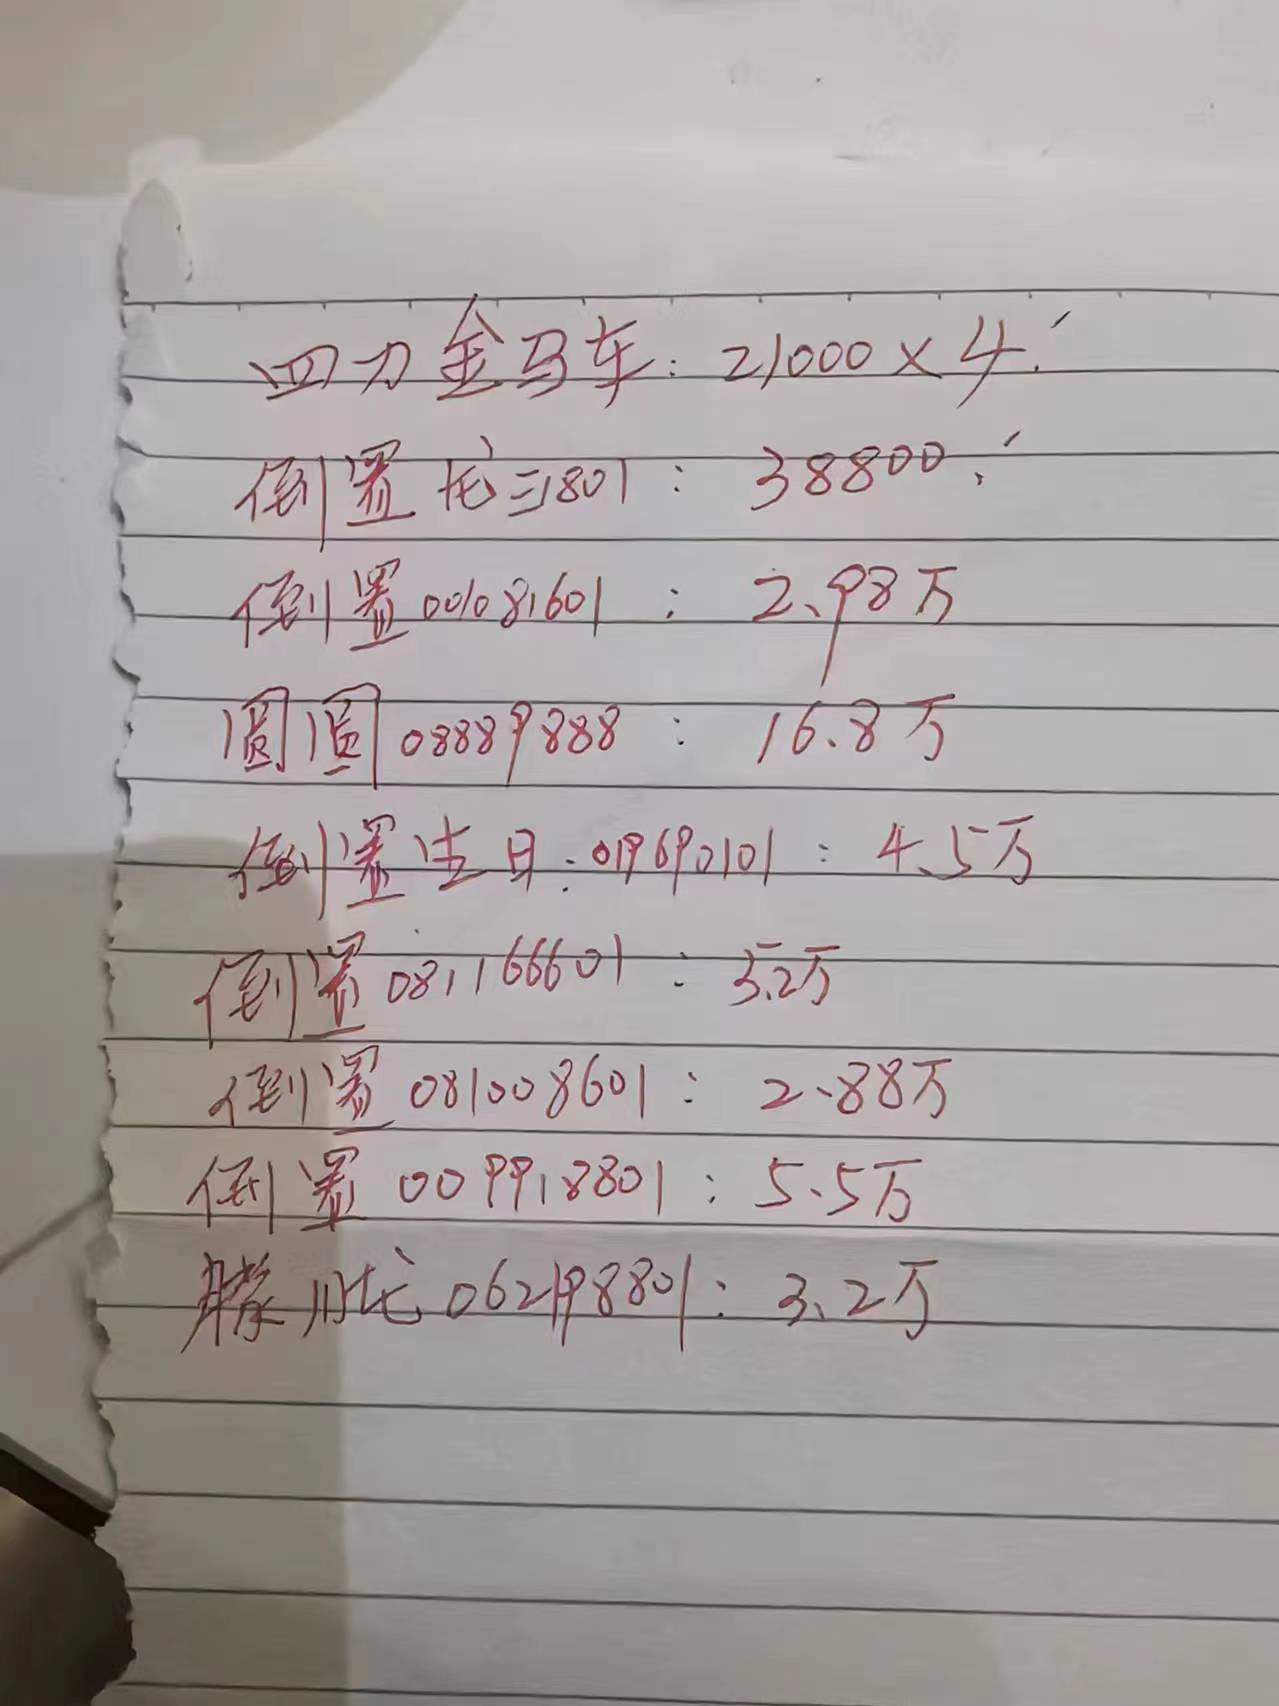 四力金马车：21000×4
倒置龙三1801：38800
倒置00108,1601：2.98万
圆圆08889888：16.8万
倒置生日：019690101：4.5万
倒置081166601：3.2万
倒置081008601：2.88万
倒置009918801：5.5万
龙062198801：3.2万